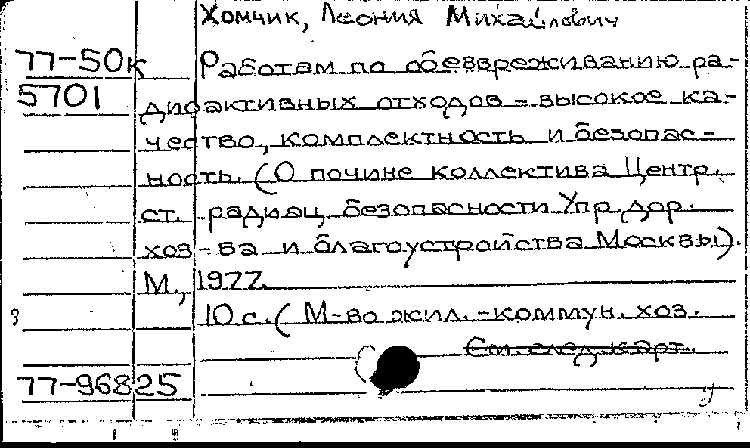 Хомчик, Леония Михайлович
77-50к Работам по обезвреживанию ра-
5701 диоактивных отходов - высокое ка-
чество, комплектность и безопас-
ность. (О почине коллектива Центр.
ст. радиац. безопасности Упр. дор.
хоз-ва и благоустройства Москвы).
М., 1977.
10 с. (М-во жил.-коммун. хоз.
См. след. карт.
77-96825